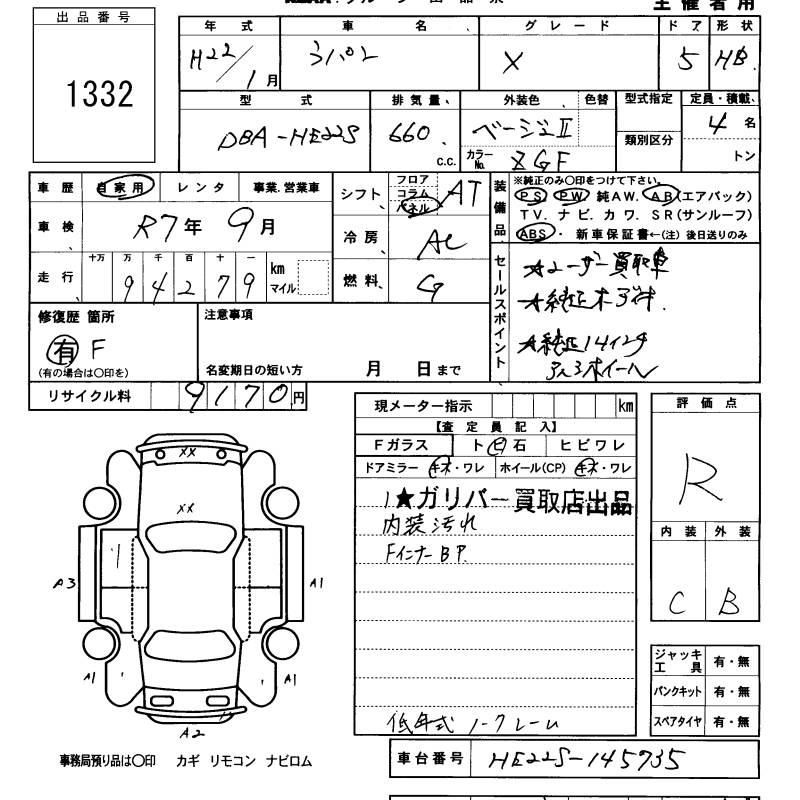 出品番号
1332
主催者用
年式 車名 グレード ドア 形状
H22/1月 ラパン X 5 HB
型式 排気量 外装色 色替 型式指定 定員・積載
DBA-HE22S 660 c.c. ベージュII 類別区分 4名
カラーNo. ZGF トン
車歴 自家用 レンタ 事業.営業車
車検 R7年 9月
走行 十万 万 千 百 十 一
94279 km マイル
シフト フロア コラム パネル AT
冷房 AC
燃料 G
装備品
※純正のみ○印をつけて下さい。
PS PW 純AW. AB(エアバック)
TV. ナビ. カワ. SR(サンルーフ)
ABS・ 新車保証書←(注) 後日送りのみ
セールスポイント
★ユーザー買取車
★純正14インチ
アルミホイール
修復歴 箇所
有 F
(有の場合は○印を)
注意事項
名変期日の短い方 月 日まで
リサイクル料 9170円
現メーター指示 km
【査定員記入】
Fガラス トビ石 ヒビワレ
ドアミラー キズ・ワレ ホイール(CP) キズ・ワレ
★ガリバー買取店出品
内装汚れ
FインナーBP.
低年式 ノークレーム
評価点
R
内装 外装
C B
ジャッキ工具 有・無
パンクキット 有・無
スペアタイヤ 有・無
XX
XX
A3
A1
A1
A1
A2
事務局預り品は○印 カギ リモコン ナビロム
車台番号 HE22S-145735